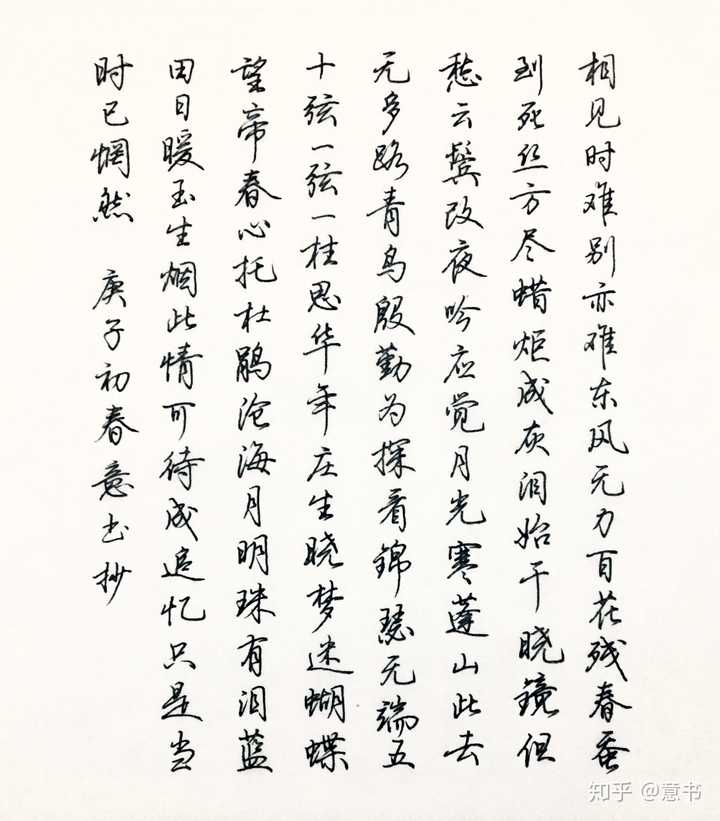 相见时难别亦难东风无力百花残春蚕
到死丝方尽蜡炬成灰泪始干晓镜但
愁云鬓改夜吟应觉月光寒蓬山此去
无多路青鸟殷勤为探看锦瑟无端五
十弦一弦一柱思华年庄生晓梦迷蝴蝶
望帝春心托杜鹃沧海月明珠有泪蓝
田日暖玉生烟此情可待成追忆只是当
时已惘然 庚子初春意书抄
知乎 @意书